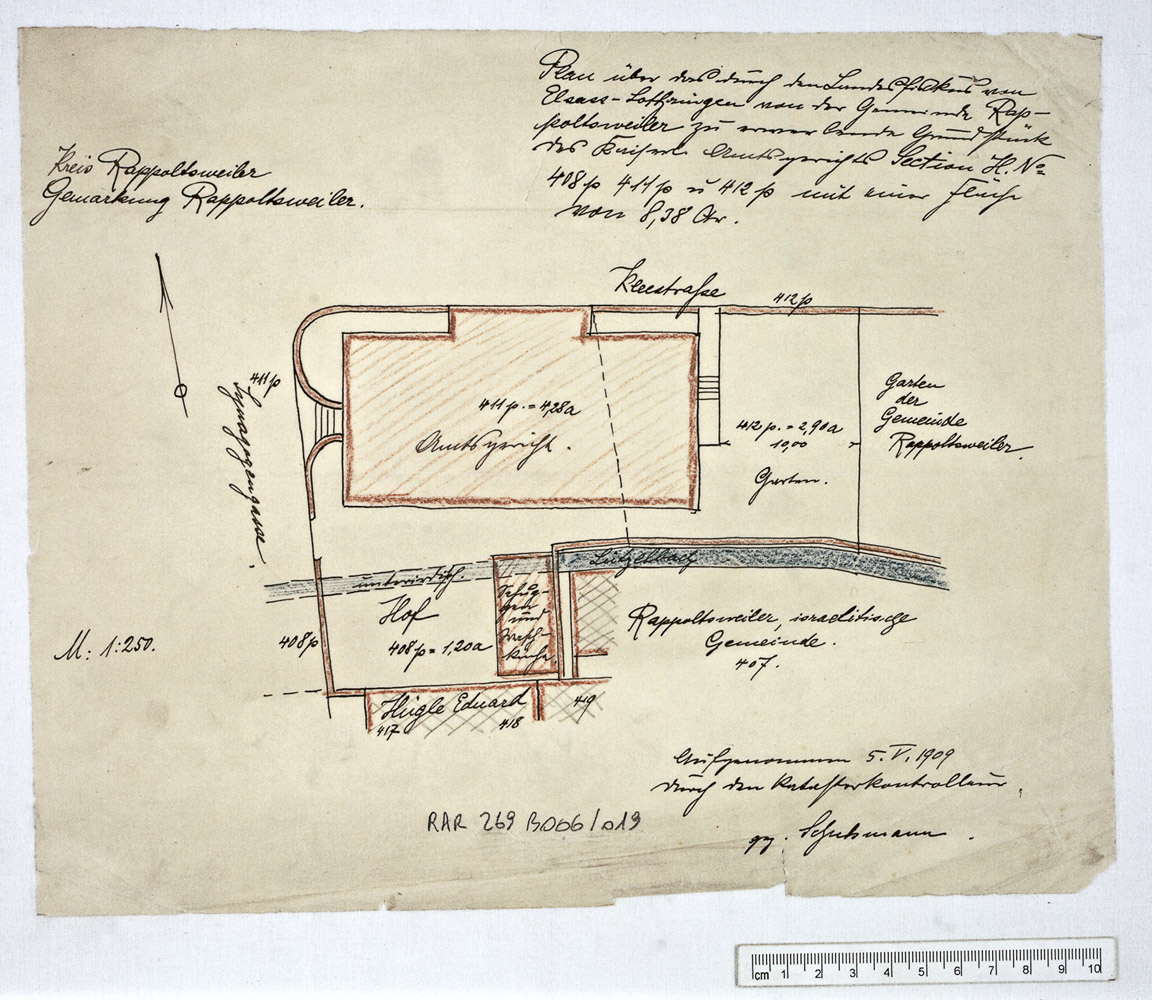 Plan über das durch den Landesfiskus von
Elsass-Lothringen von der Gemeinde Rap-
poltsweiler zu erwerbende Grundstück
des Kaiserl. Amtsgerichts Section H. No
408p 411p u 412p mit einer Fläche
von 8,38 Ar.
Kreis Rappoltsweiler
Gemarkung Rappoltsweiler.
Kleestraße
412p
411p
Synagogengasse.
411p. = 4,28a
Amtsgericht.
412p. = 2,90a
10,00
Garten.
Garten
der
Gemeinde
Rappoltsweiler.
Lützelbach
unterirdisch.
Hof
408p = 1,20a
408p
und
Wasch-
küche.
Rappoltsweiler, israelitische
Gemeinde.
407.
M: 1:250.
Hügle Eduard
417
418
419
Aufgenommen 5.V.1909
durch den Katasterkontrolleur,
gez. Schuhmann.
RAR 269 B006/019
cm 1 2 3 4 5 6 7 8 9 10